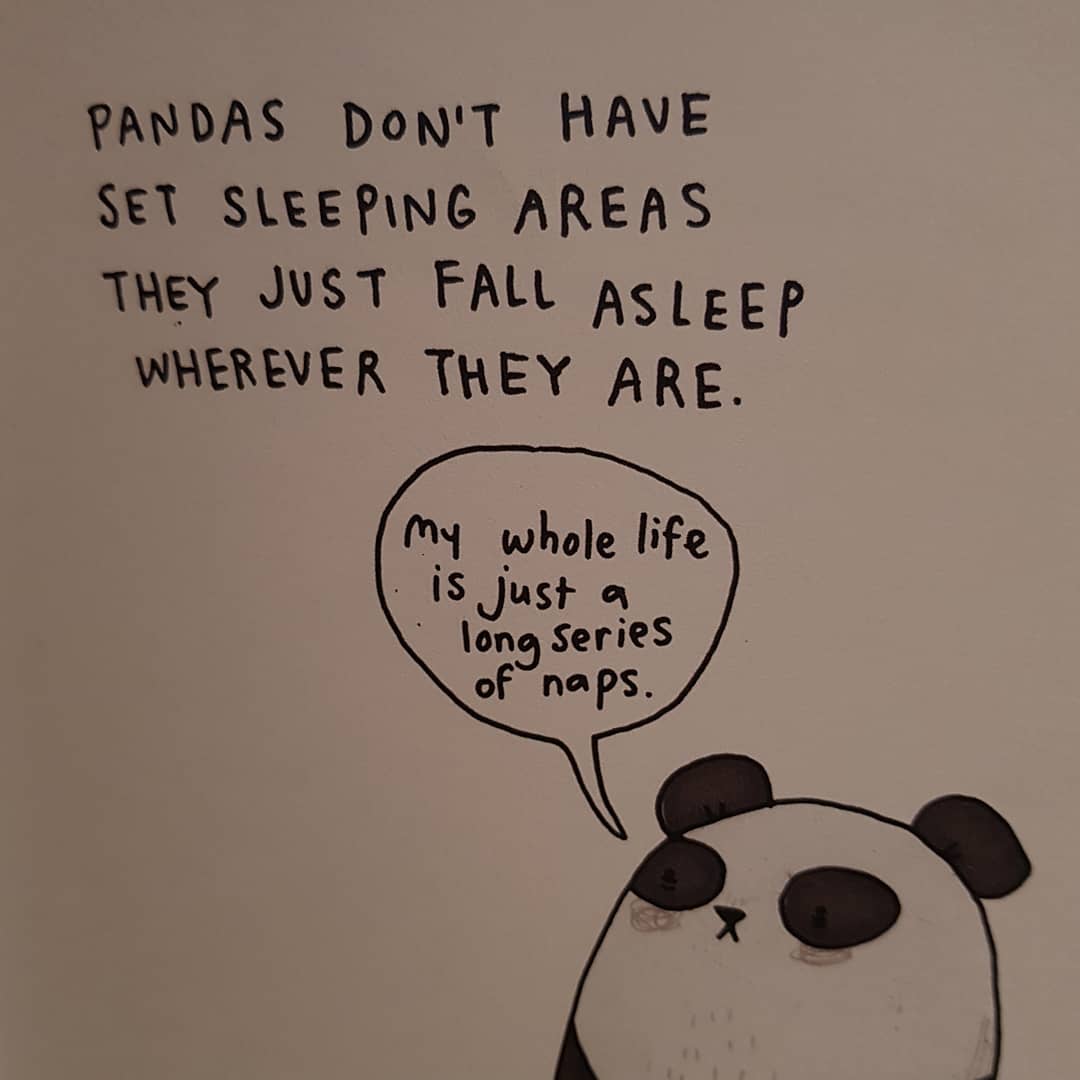 PANDAS DON'T HAVE
SET SLEEPING AREAS
THEY JUST FALL ASLEEP
WHEREVER THEY ARE.
my whole life
is just a
long series
of naps.